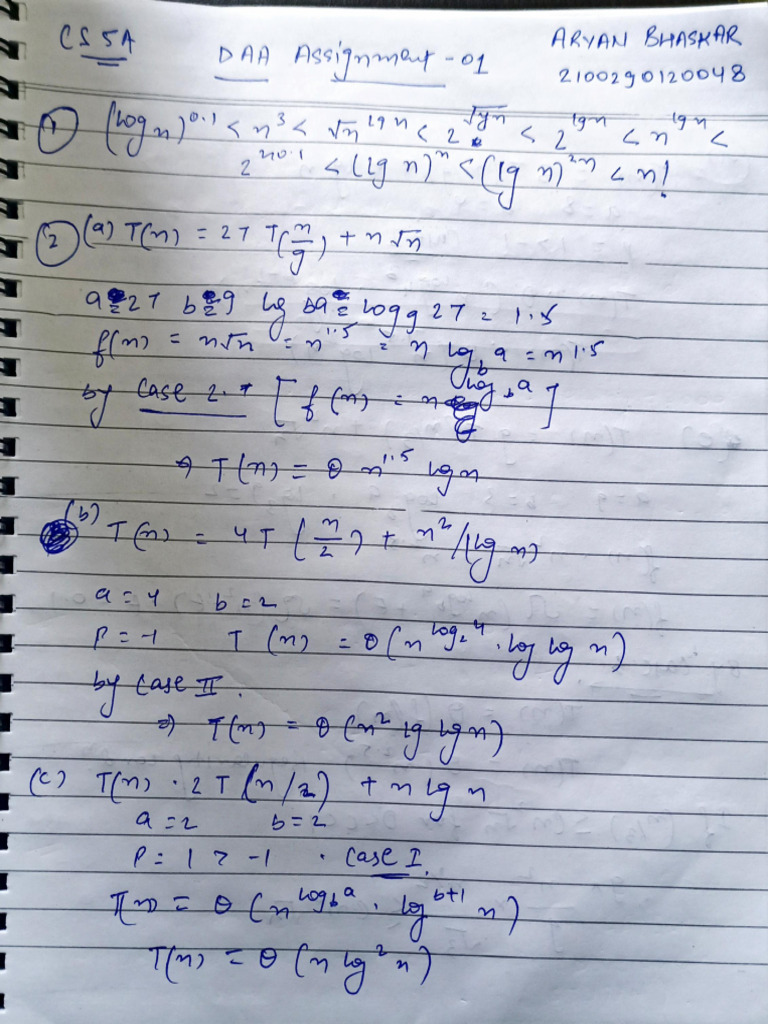 CS 5A
DAA Assignment - 01
ARYAN BHASKAR
2100290120048
① (log n)^0.1 < n^3 < √n^lg n < 2^√lg n < 2^lg n < n^lg n <
2^n^0.1 < (lg n)^n < (lg n)^2n < n!
② (a) T(n) = 27 T(n/9) + n√n
a = 27 b = 9 lg ba = log 9 27 = 1.5
f(n) = n√n = n^1.5 = n log_b a = n 1.5
by Case 2. [f(n) = n log_b a]
⇒ T(n) = θ n^1.5 lg n
(b) T(n) = 4T (n/2) + n^2/(lg n)
a = 4 b = 2
P = -1 T(n) = θ(n^log_2 4 . log log n)
by Case II.
⇒ T(n) = θ (n^2 lg lg n)
(c) T(n) . 2T (n/2) + n lg n
a = 2 b = 2
P = 1 > -1 . Case I.
T(n) = θ (n^log_b a . log^b+1 n)
T(n) = θ (n log^2 n)